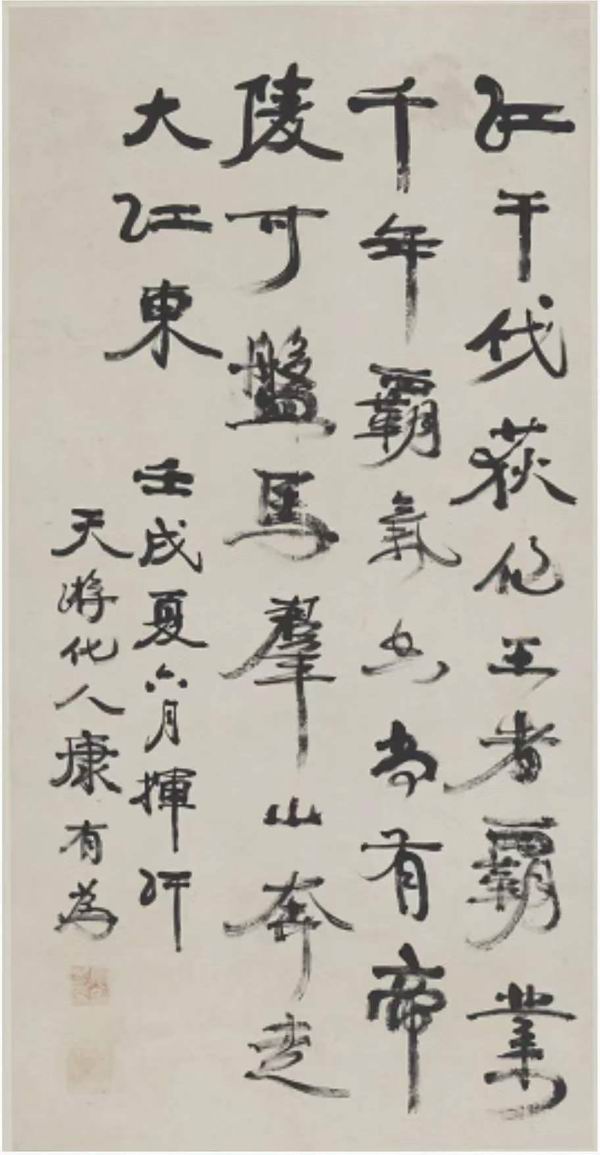 江干伐荻王者霸業
千年霸氣空尚有帝
陵可盤馬羣山奔走
大江東 壬戌夏六月揮汗
天游化人康有為